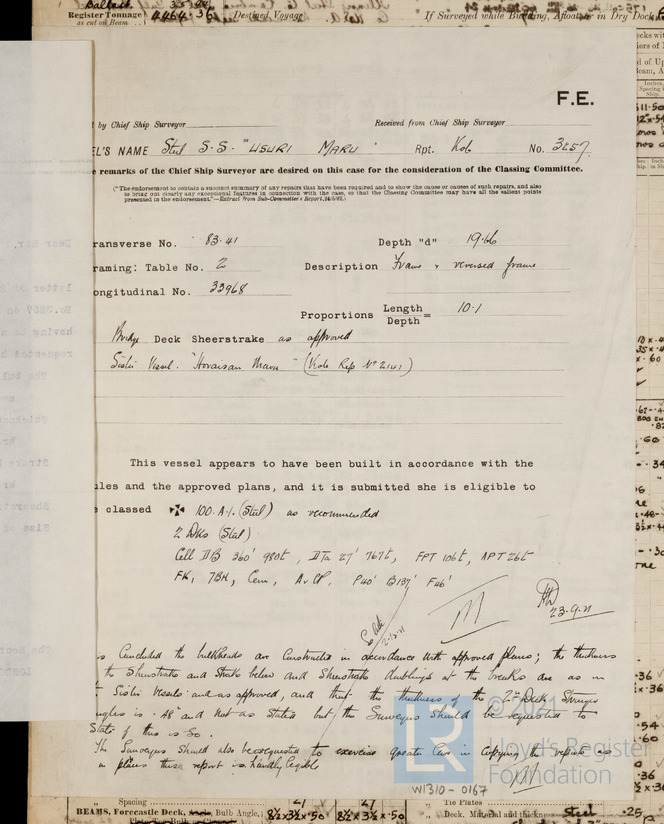 Register Tonnage 4464.36 Destined Voyage If Surveyed while Building, Afloat or in Dry Dock
as cut on Beam
F.E.
by Chief Ship Surveyor Received from Chief Ship Surveyor
EL'S NAME Steel S.S. "USURI MARU" Rpt. Kob No. 3257
remarks of the Chief Ship Surveyor are desired on this case for the consideration of the Classing Committee.
("The endorsement to contain a succinct summary of any repairs that have been required and to show the cause or causes of such repairs, and also
to bring out clearly any exceptional features in connection with the case, so that the Classing Committee may have all the salient points
presented in the endorsement."—Extract from Sub-Committee's Report,
ransverse No. 83.41 Depth "d" 19.66
raming: Table No. 2 Description Frame & reversed frame
ongitudinal No. 33968
Proportions Length/Depth = 10.1
Bridge Deck Sheerstrake as approved
Sister Vessel. "Hovaisan Maru" (Kob Rep No 2141)
This vessel appears to have been built in accordance with the
les and the approved plans, and it is submitted she is eligible to
classed ✠ 100.A.1. (Steel) as recommended
2 Dks (Steel)
Cell DB 360' 980t, DTa 27' 767t, FPT 106t, APT 26t
FK, 7BH, Cem, A&CP. P40' B137' F46'
23.9.21
Concluded the bulkheads are constructed in accordance with approved plans; the thickness
the Sheerstrake and Strake below and Sheerstrake doublings at the breaks are as in
Sister Vessels and as approved, and that the thickness of the 2nd Deck Stringer
angles is .48" and not as stated but the Surveyors should be requested to
State if this is so.
The Surveyors should also be requested to exercise greater care in copying the reports
plans these report is hardly legible
© 2021
LR
Lloyd's Register
Foundation
W1310-0167
Spacing 21 21 Tie Plates
BEAMS, Forecastle Deck, Angle, Bulb Angle, 8½x3½x.50 8½x3½x.50 Deck. Material and thickness Steel .25